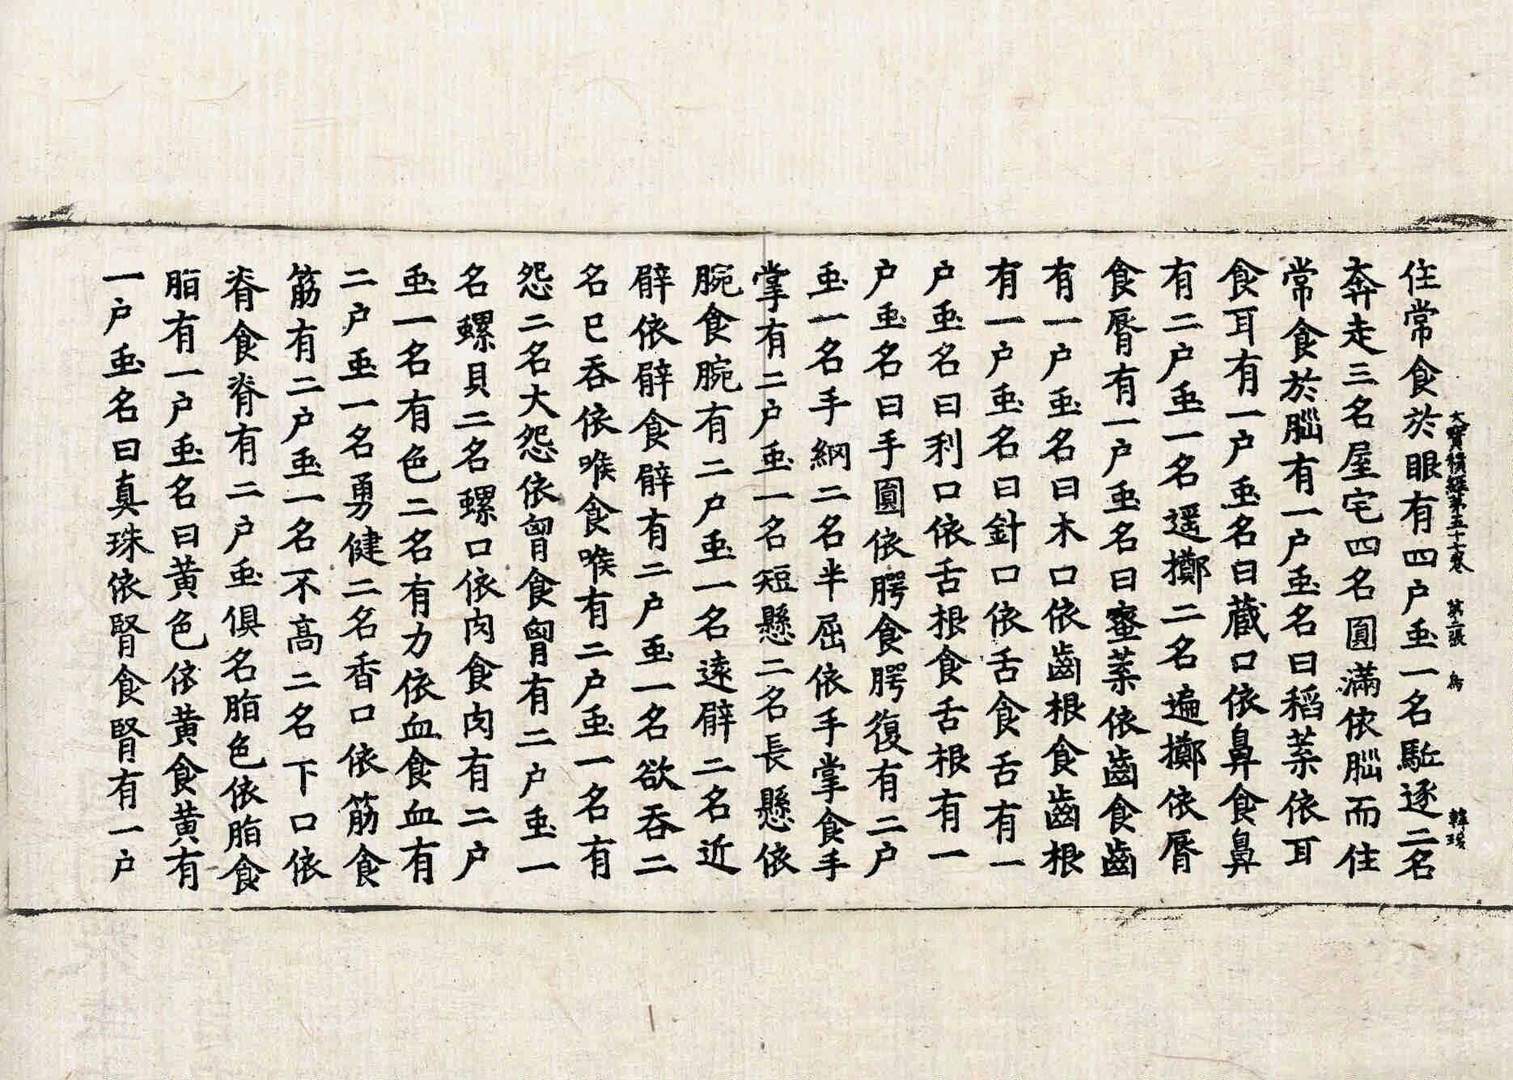 大寶積經第五十七卷 第二張 鳥 韓瑗
住常食於眼有四户䖝一名駈逐二名
奔走三名屋宅四名圓滿依腦而住
常食於腦有一户䖝名曰稻葉依耳
食耳有一户䖝名曰藏口依鼻食鼻
有二户䖝一名遥擲二名遍擲依脣
食脣有一户䖝名曰蜜葉依齒食齒
有一户䖝名曰木口依齒根食齒根
有一户䖝名曰針口依舌食舌有一
户䖝名曰利口依舌根食舌根有一
户䖝名曰手圓依腭食腭復有二户
䖝一名手網二名半屈依手掌食手
掌有二户䖝一名短懸二名長懸依
腕食腕有二户䖝一名遠臂二名近
臂依臂食臂有二户䖝一名欲吞二
名已吞依喉食喉有二户䖝一名有
怨二名大怨依胷食胷有二户䖝一
名螺貝二名螺口依肉食肉有二户
䖝一名有色二名有力依血食血有
二户䖝一名勇健二名香口依筋食
筋有二户䖝一名不高二名下口依
脊食脊有二户䖝俱名脂色依脂食
脂有一户䖝名曰黄色依黄食黄有
一户䖝名曰真珠依腎食腎有一户